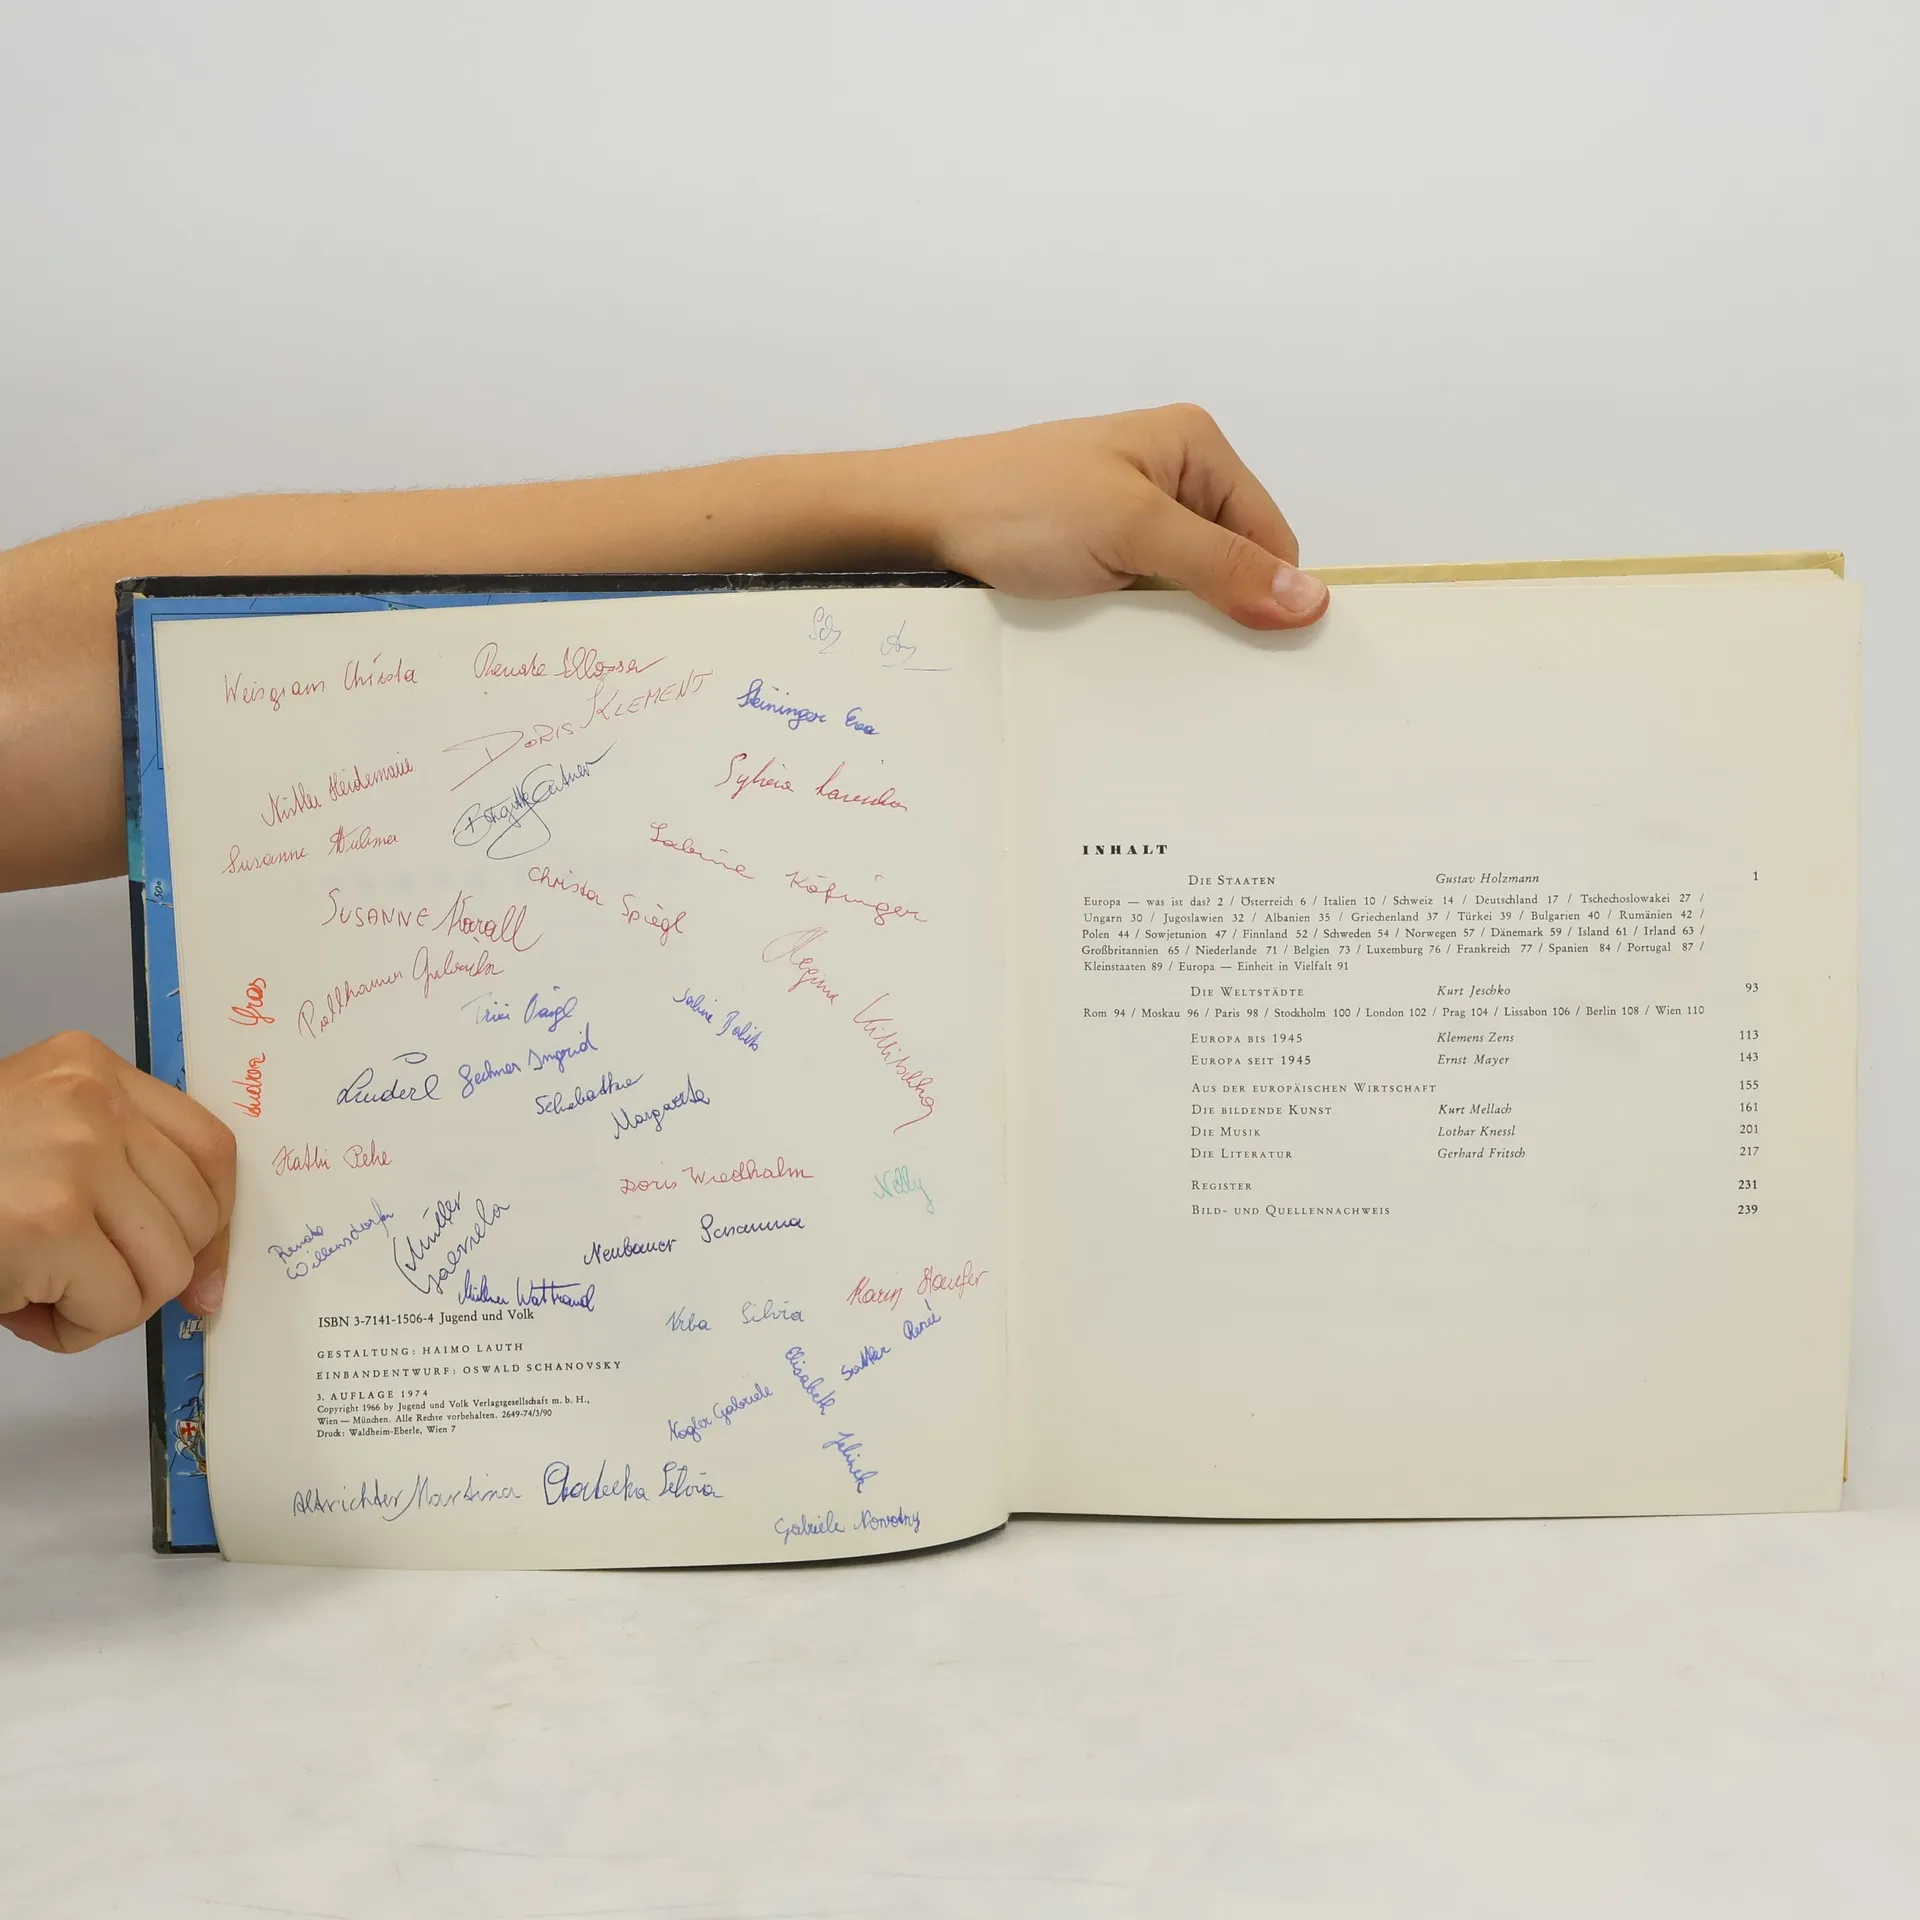 Weisgram Christa
Renate Schlosser
DORIS KLEMENT
Steininger Eva
Heidemarie
Sylvia
Susanne
Brigitte
Sabine
Christa Spiegl
SUSANNE Karall
Gabriela
Regine
Sabine
Linderl
Ingrid
Margareta
Kathi Pehe
Doris Wiedhalm
Nelly
Renate
Willensdorfer
Müller
Gabriela
Neubauer Susanna
Karin Haufer
Vrba Silvia
Sattler René
Elisabeth Jelinek
Nogler Gabriele
ISBN 3-7141-1506-4 Jugend und Volk
GESTALTUNG: HAIMO LAUTH
EINBANDENTWURF: OSWALD SCHANOVSKY
3. AUFLAGE 1974
Copyright 1966 by Jugend und Volk Verlagsgesellschaft m. b. H.,
Wien — München. Alle Rechte vorbehalten. 2649-74/3/90
Druck: Waldheim-Eberle, Wien 7
Altrichter Martina
Silvia
Gabriele Nowotny
INHALT
DIE STAATEN Gustav Holzmann 1
Europa — was ist das? 2 / Österreich 6 / Italien 10 / Schweiz 14 / Deutschland 17 / Tschechoslowakei 27 /
Ungarn 30 / Jugoslawien 32 / Albanien 35 / Griechenland 37 / Türkei 39 / Bulgarien 40 / Rumänien 42 /
Polen 44 / Sowjetunion 47 / Finnland 52 / Schweden 54 / Norwegen 57 / Dänemark 59 / Island 61 / Irland 63 /
Großbritannien 65 / Niederlande 71 / Belgien 73 / Luxemburg 76 / Frankreich 77 / Spanien 84 / Portugal 87 /
Kleinstaaten 89 / Europa — Einheit in Vielfalt 91
DIE WELTSTÄDTE Kurt Jeschko 93
Rom 94 / Moskau 96 / Paris 98 / Stockholm 100 / London 102 / Prag 104 / Lissabon 106 / Berlin 108 / Wien 110
EUROPA BIS 1945 Klemens Zens 113
EUROPA SEIT 1945 Ernst Mayer 143
AUS DER EUROPÄISCHEN WIRTSCHAFT 155
DIE BILDENDE KUNST Kurt Mellach 161
DIE MUSIK Lothar Knessl 201
DIE LITERATUR Gerhard Fritsch 217
REGISTER 231
BILD- UND QUELLENNACHWEIS 239